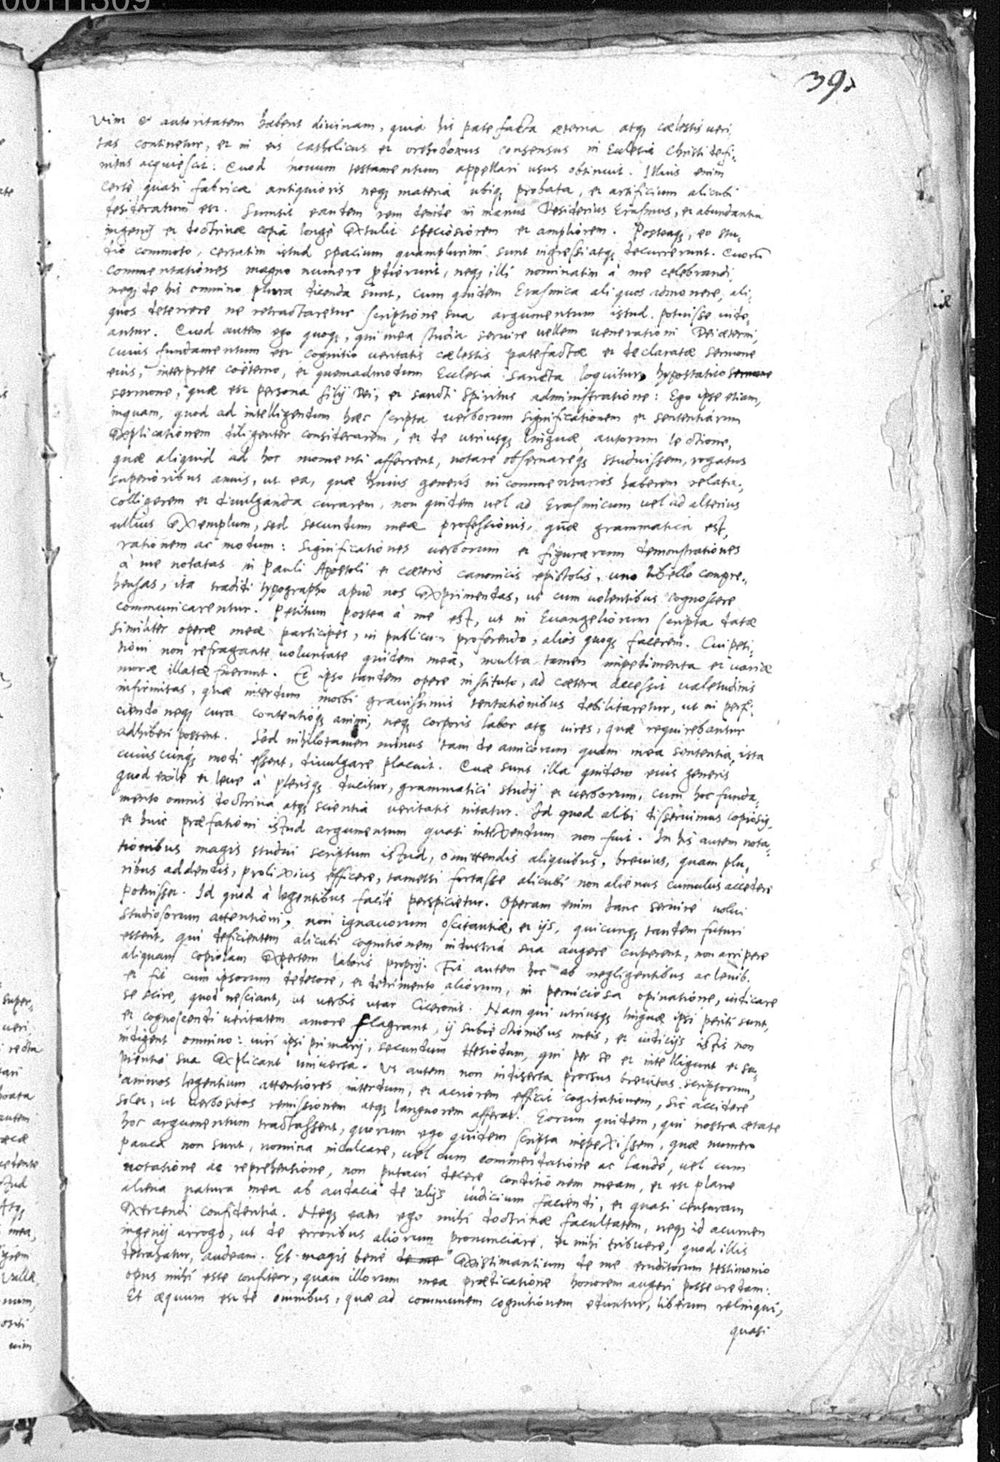 00111309
39
Vim et autoritatem habent divinam, quia his patefacta æterna atq; cælestis veri,
tas continetur, et in eis catholicus et orthodoxus consensus in Ecclesia Christi defi,
nitus acquiescit: Quod novum testamentum appellari usus obtinuit. Illius enim
certe quasi fabrica antiquioris neq; materia ubiq; probata, et artificium alicubi
desideratum est. Sumsit eandem rem deinde in manus Desiderius Erasmus, et abundantia
ingenij et doctrinæ copia longè extulit speciosiorem et ampliorem. Posteaq;, eo stu,
dio commoto, certatim istud spacium quamplurimi sunt ingressi atq; decurrerunt. Quorum
commentationes magno numero prodierunt, neq; illi nominatim à me celebrandi,
neq; de his omnino plura dicenda sunt, cum quidem Erasmica aliquos admonere, ali,
quos deterrere ne retractaretur scriptione sua argumentum istud potuisse vide,
antur. Quod autem ego quoq;, qui mea studia servire vellem venerationi Dei æterni,
cuius fundamentum est cognitio veritatis cælestis patefactæ et declaratæ sermone
eius, interprete coëterno, et quemadmodum Ecclesia sancta loquitur, hypostatico sermone
sermone, quæ est persona filij Dei, et sancti Spiritus administratione: Ego ipse etiam,
inquam, quod ad intelligendum hæc scripta verborum significationem et sententiarum
explicationem diligenter considerarem, et de utriusq; linguæ autorum lectione,
quæ aliquid ad hoc momenti afferrent, notare observareq; studuissem, rogatus
superioribus annis, ut ea, quæ huius generis in commentarios haberem relata,
colligerem et divulganda curarem, non quidem vel ad Erasmicum vel ad alterius
ullius exemplum, sed secundum meæ professionis, quæ grammatica est,
rationem ac modum: Significationes verborum et figurarum demonstrationes
à me notatas in Pauli Apostoli et cæteris canonicis epistolis, uno libello compre,
hensas, ita tradidi typographo apud nos exprimendas, ut cum volentibus cognoscere
communicarentur. Petitum postea à me est, ut in Evangeliorum scripta datæ
similiter operæ meæ participes, in publicum proferendo, alios quoq; facerem. Cui peti,
tioni non refragante voluntate quidem mea, multa tamen impedimenta et variæ
moræ illatæ fuerunt. Et ipso tandem opere instituto, ad cætera accessit valetudinis
infirmitas, quæ interdum morbi gravissimis tentationibus debilitaretur, ut in perfi,
ciendo neq; cura contentioq; animi, neq; corporis labor atq; vires, quæ requirebantur
adhiberi possent. Sed nihilotamen minus tam de amicorum quam mea sententia, ista
cuiuscunq; modi essent, divulgare placuit. Quæ sunt illa quidem eius generis
quod exile et leve à plerisq; ducitur, grammatici studij et verborum, cum hoc funda,
mento omnis doctrina atq; scientia veritatis nitatur. Id quod alibi disseruimus copiosiq,
et huic præfationi istud argumentum quasi intexendum non fuit. In his autem nota,
tionibus magis studui scriptum istud, omittendis aliquibus, brevius, quam plu,
ribus addendis, prolixius efficere, tametsi fortasse alicubi non alienus cumulus accedere
potuisset. Id quod à legentibus facile perspicietur. Operam enim hanc servire volui
studiosorum attentioni, non ignavorum oscitantiæ, et ijs, quicunq; tandem futuri
essent, qui deficientem alicubi cognitionem industria sua augere cuperent, non arripere
aliquam copiolam expertem laboris proprij. Fit autem hoc ab negligentibus ac levib.
et fit cum ipsorum dedecore, et detrimento aliorum, in perniciosa opinatione, iudicare
se scire, quod nesciant, ut verbis utar Ciceronis. Nam qui utriusq; linguæ ipsi periti sunt,
et cognoscendi veritatem amore flagrant, ij subiectionibus meis, et iudicijs istis non
indigent omnino: viri ipsi primarij, secundum Hesiodum, qui per se et intelligunt et sa,
pientia sua explicant universa. Ut autem non indiserta prorsus brevitas scriptorum,
animos legentium attentiores interdum, et acriorem efficit cogitationem, sic accidere
solet, ut verbositas remissionem atq; languorem afferat. Eorum quidem, qui nostra ætate
hoc argumentum tractassent, quorum ego quidem scripta inspexissem, quæ numero
pauca non sunt, nomina inculcare, vel cum commendatione ac laude, vel cum
notatione ac reprehensione, non putavi decere conditionem meam, et est plane
aliena natura mea ab audacia de alijs iudicium faciendi, et quasi censuram
exercendi confidentia. Neq; eam ego mihi doctrinæ facultatem, neq; id acumen
ingenij arrogo, ut de erroribus aliorum pronunciare, et mihi tribuere, quod illis
detrahatur, audeam. Et magis bene de me existimantium de me eruditorum testimonio
opus mihi esse confiteor, quam illorum mea prædicatione honorem augeri posse credam.
Et æquum est de omnibus, quæ ad communem cognitionem eduntur, liberum relinqui,
quasi